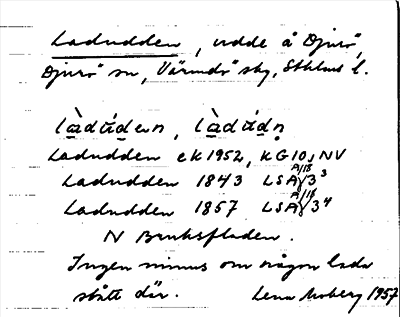 Ladudden, udde å Djurö,
Djurö sn, Värmdö skg, Sthlms l.
làdúden, làdúdn̥
Ladudden ek 1952, KG 10, NV
Ladudden 1843 LSA A/18 3³
Ladudden 1857 LSA A/18 3⁴
N Bruksfladen.
Ingen minns om någon lada
stått där. Lena Moberg 1957